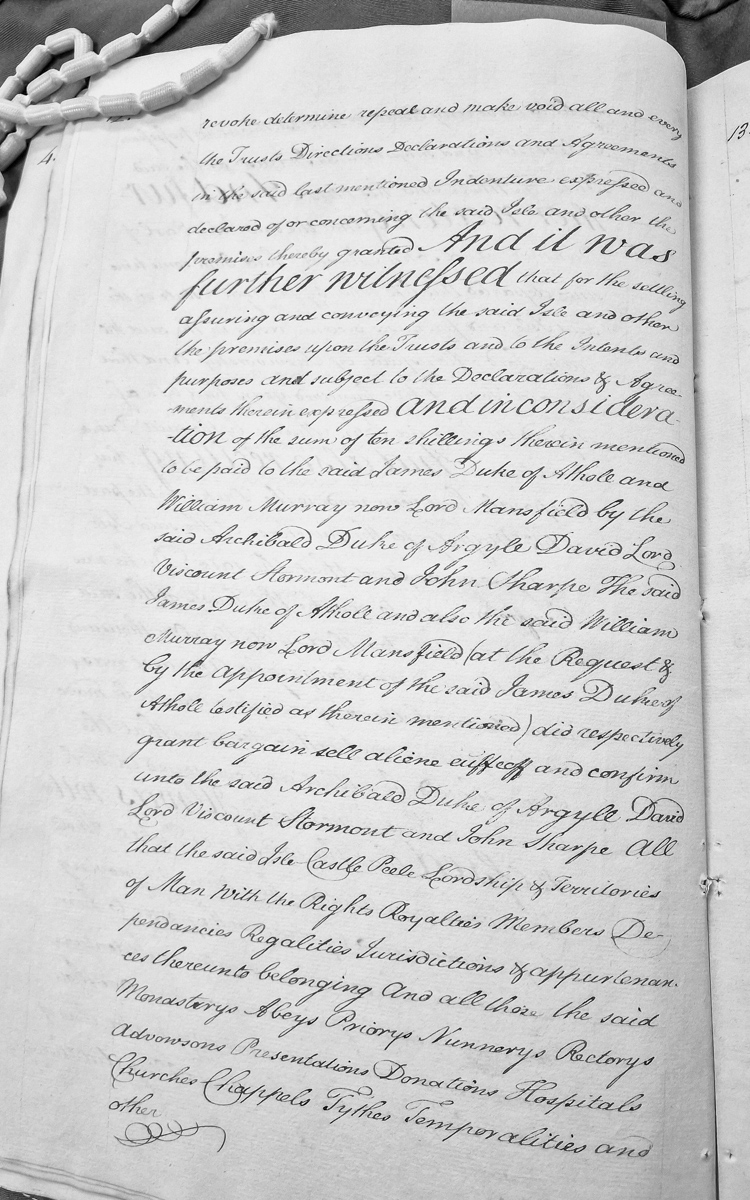 4.
13
revoke determine repeal and make void all and every
the Trusts Directions Declarations and Agreements
in the said last mentioned Indenture expressed and
declared of or concerning the said Isle and other the
premises thereby granted And it was
further witnessed that for the settling
assuring and conveying the said Isle and other
the premises upon the Trusts and to the Intents and
purposes and subject to the Declarations & Agree-
-ments therein expressed and in considera-
-tion of the sum of ten shillings therein mentioned
to be paid to the said James Duke of Atholl and
William Murray now Lord Mansfield by the
said Archibald Duke of Argyle David Lord
Viscount Stormont and John Sharpe The said
James Duke of Atholl and also the said William
Murray now Lord Mansfield (at the Request &
by the appointment of the said James Duke of
Atholl testified as therein mentioned) did respectively
grant bargain sell aliene enffeoff and confirm
unto the said Archibald Duke of Argyll David
Lord Viscount Stormont and John Sharpe All
that the said Isle Castle Peele Lordship & Territories
of Man With the Rights Royalties Members De-
pendancies Regalities Jurisdictions & appurtenan-
ces thereunto belonging And all those the said
Monasterys Abeys Priorys Nunnerys Rectorys
Advowsons Presentations Donations Hospitals
Churches Chappels Tythes Temporalities and
other